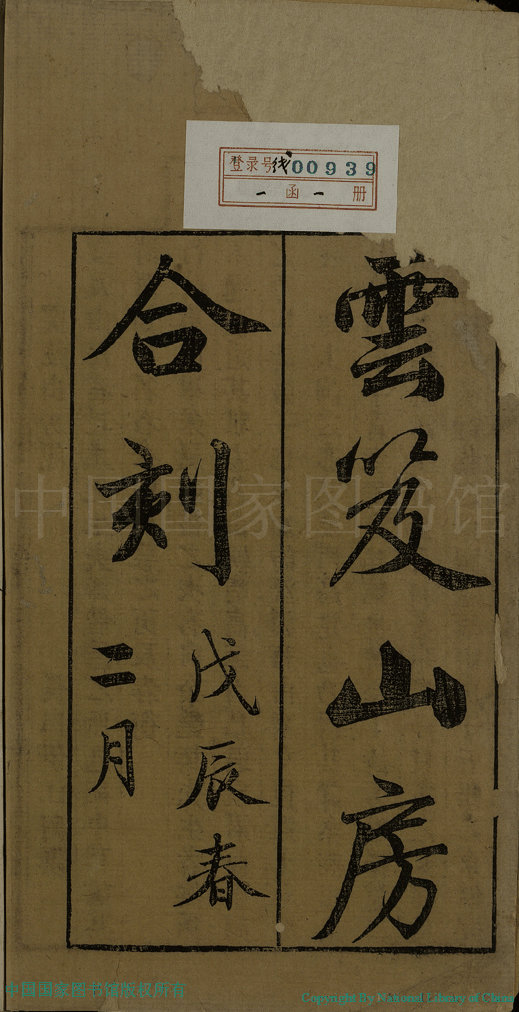 登录号线00939
一函一册
雲笈山房
合刻
戊辰春
二月
中国国家图书馆
中国国家图书馆版权所有
Copyright by National Library of China